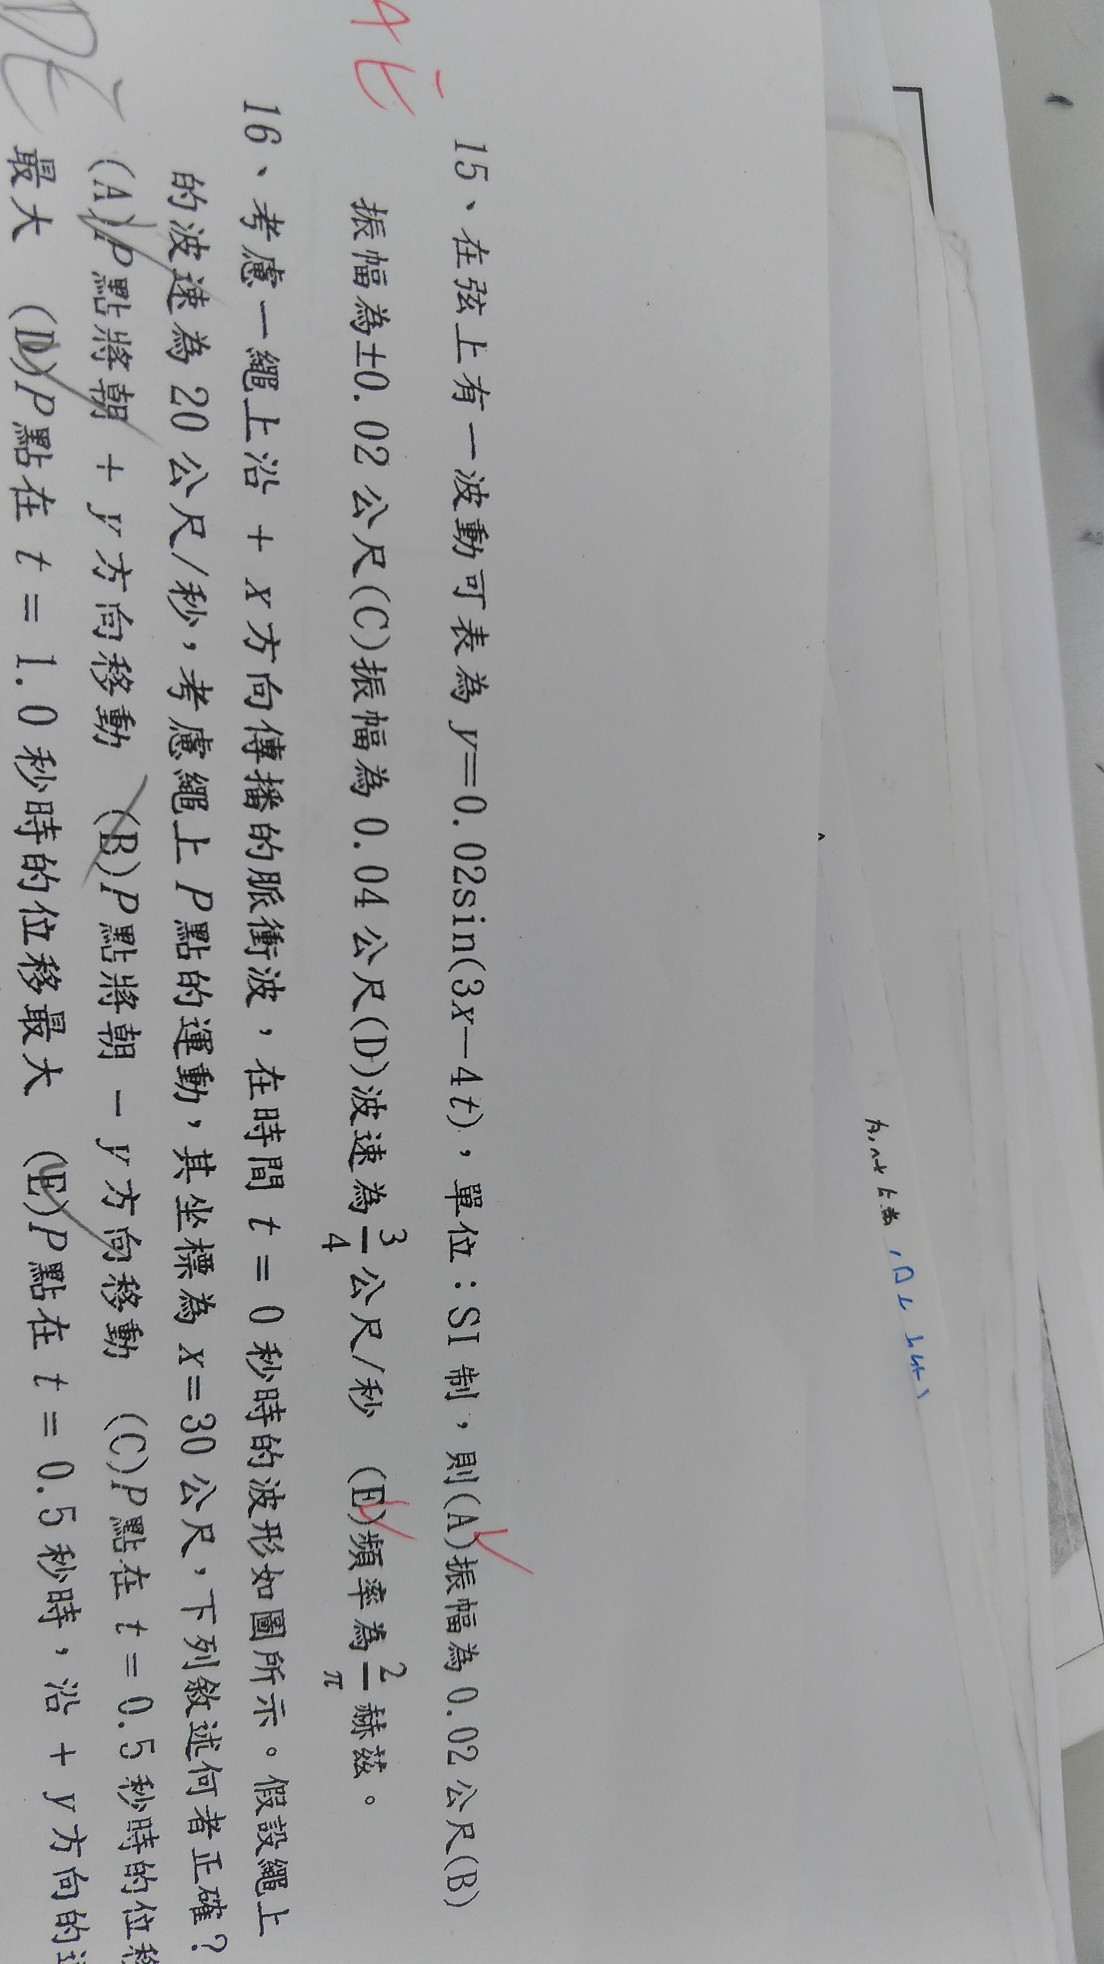 AE
15、在弦上有一波動可表為 y=0.02sin(3x−4t)，單位：SI 制，則(A)振幅為 0.02 公尺(B)
振幅為±0.02 公尺(C)振幅為 0.04 公尺(D)波速為 3/4 公尺/秒 (E)頻率為 2/π 赫茲。
DE
16、考慮一繩上沿 + x 方向傳播的脈衝波，在時間 t = 0 秒時的波形如圖所示。假設繩上
的波速為 20 公尺/秒，考慮繩上 P 點的運動，其坐標為 x=30 公尺，下列敘述何者正確？
(A)P點將朝 + y 方向移動 (B)P點將朝 − y 方向移動 (C)P點在 t = 0.5 秒時的位移
最大 (D)P點在 t = 1.0 秒時的位移最大 (E)P點在 t = 0.5 秒時，沿 + y 方向的